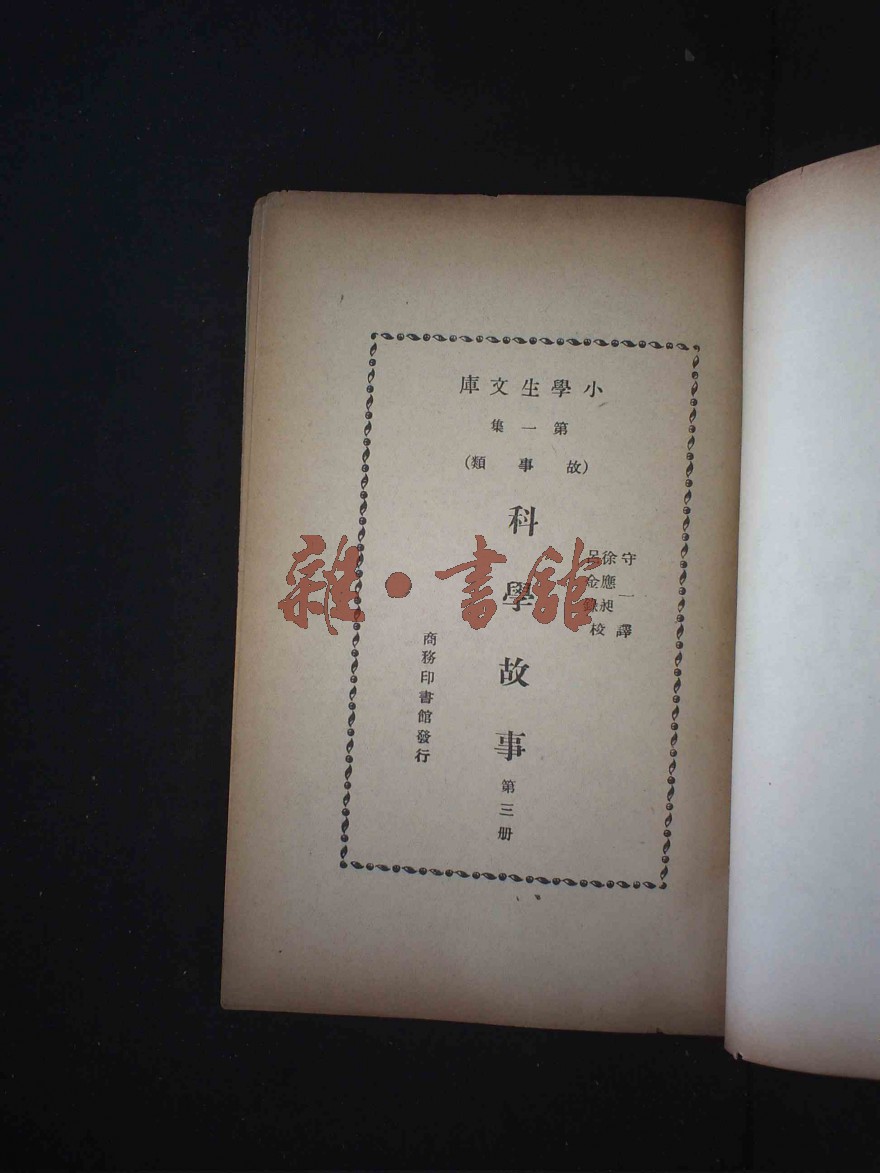 小學生文庫
第一集
(故事類)
守一譯
徐應昶
呂金錄校
科學故事 第三册
商務印書館發行
雜·書館